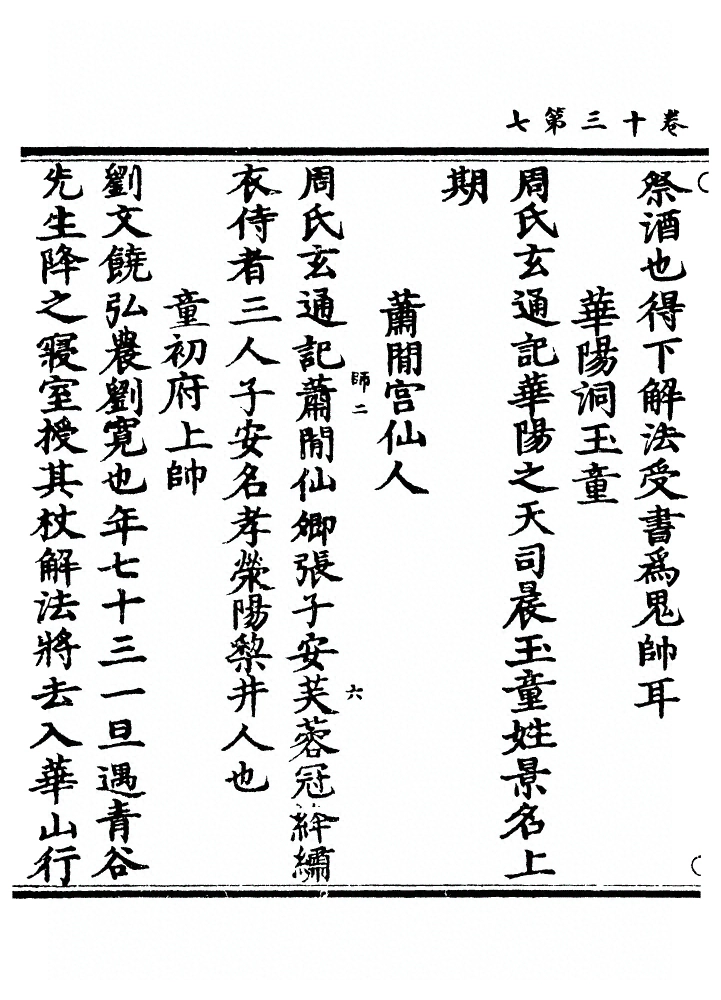 卷十三第七
祭酒也得下解法受書爲鬼帥耳
華陽洞玉童
周氏玄通記華陽之天司晨玉童姓景名上
期
蕭閒宮仙人
師二
六
周氏玄通記蕭閒仙卿張子安芙蓉冠絳繡
衣侍者三人子安名孝滎陽梨井人也
童初府上帥
劉文饒弘農劉寬也年七十三一旦遇青谷
先生降之寢室授其杖解法將去入華山行